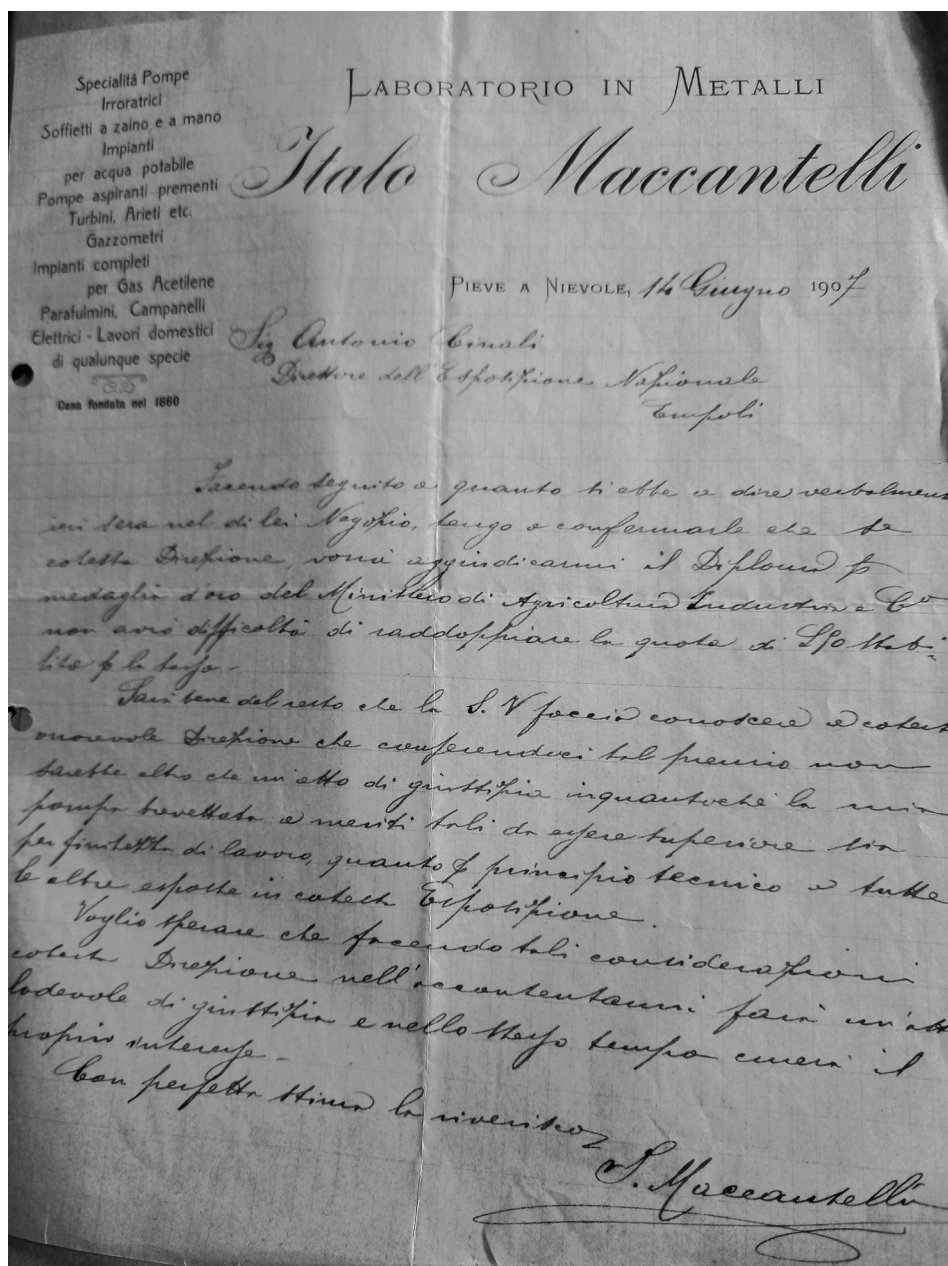 Specialità Pompe
Irroratrici
Soffietti a zaino e a mano
Impianti
per acqua potabile
Pompe aspiranti prementi
Turbini, Arieti etc.
Gazzometri
Impianti completi
per Gas Acetilene
Parafulmini, Campanelli
Elettrici - Lavori domestici
di qualunque specie
Casa fondata nel 1860
LABORATORIO IN METALLI
Italo Maccantelli
PIEVE A NIEVOLE, 14 Giugno 1907
Sig Antonio
Direttore dell'Esposizione Nazionale
Empoli
Facendo seguito a quanto si ebbe a dire verbalment
ieri sera nel di lei Negozio, tengo a confermarle che se
cotesta Direzione, vorrà aggiudicarmi il Diploma p
medaglia d'oro del Ministero di Agricoltura Industria e Co
non avrò difficoltà di raddoppiare la quota di stabi-
lita p la tassa -
Sarà bene del resto che la S. V faccia conoscere a cotest
onorevole Direzione che conferendoci tal premio non
sarebbe altro che un'atto di giustizia inquantochè la mia
pompa brevettata a meriti tali da essere superiore sia
per finitezza di lavoro, quanto p principio tecnico a tutte
le altre esposte in cotesta Esposizione
Voglio sperare che facendo tali considerazioni
cotesta Direzione nell'accontentarmi farà un'att
lodevole di giustizia e nello stesso tempo curerà il
proprio interesse -
Con perfetta stima la riverisco
I. Maccantelli